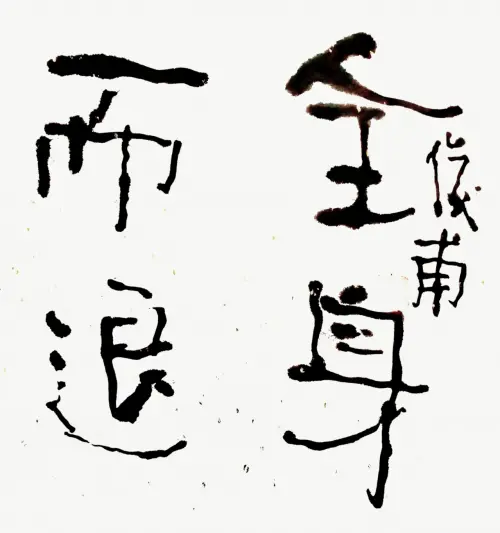 全身
而退
儀甫